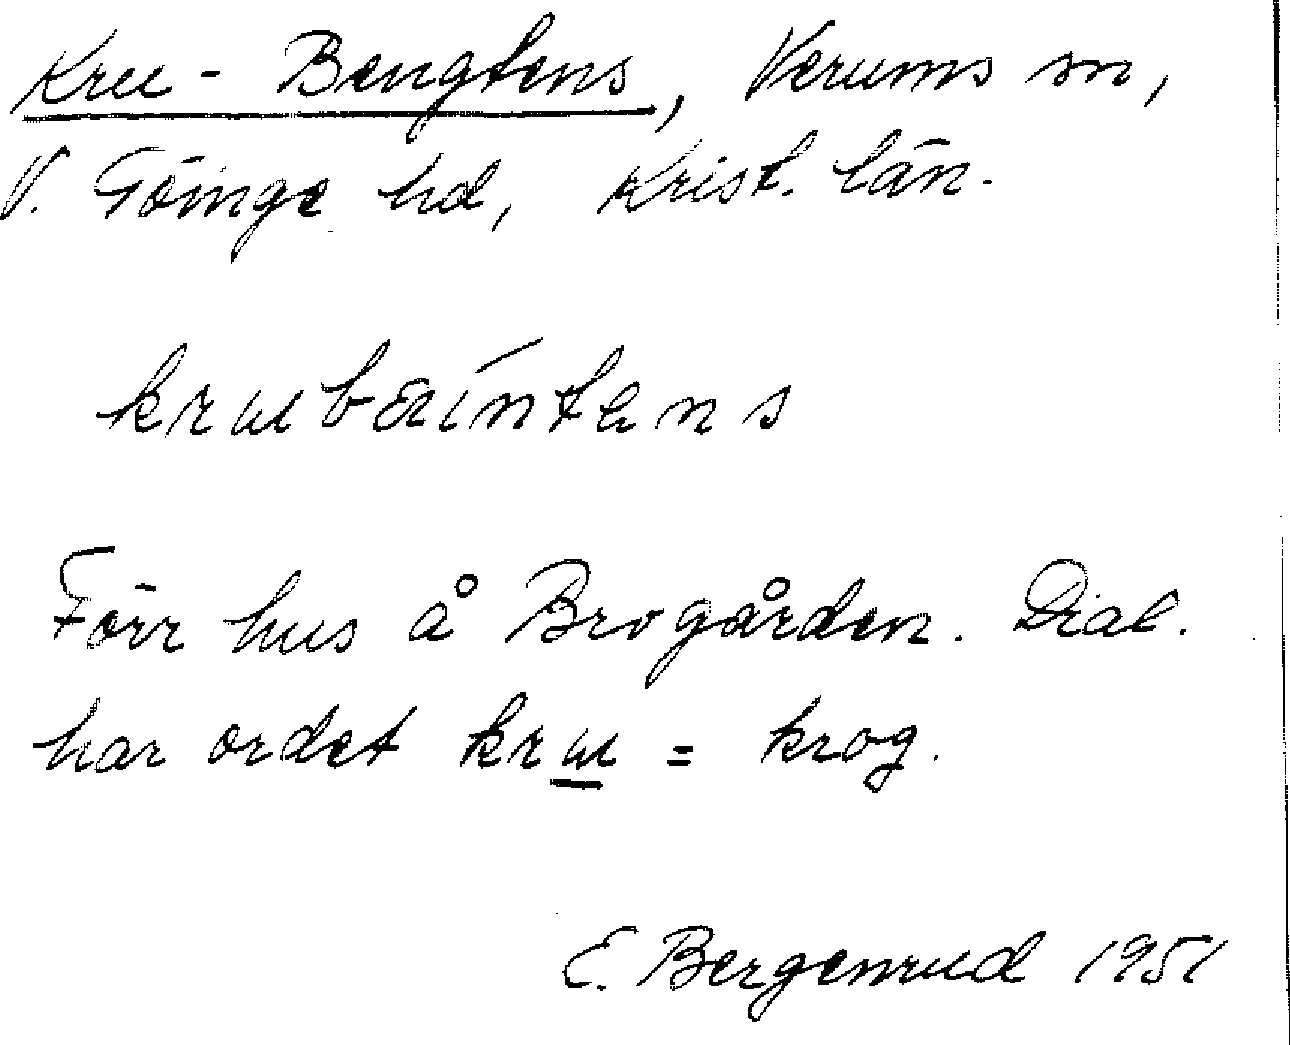 Kru-Bengtens, Verums sn,
V. Göinge hd, Krist. län.
krɯbæíntɐns
Förr hus å Brogården. Dial.
har ordet krɯ = krog.
E. Bergenrud 1951